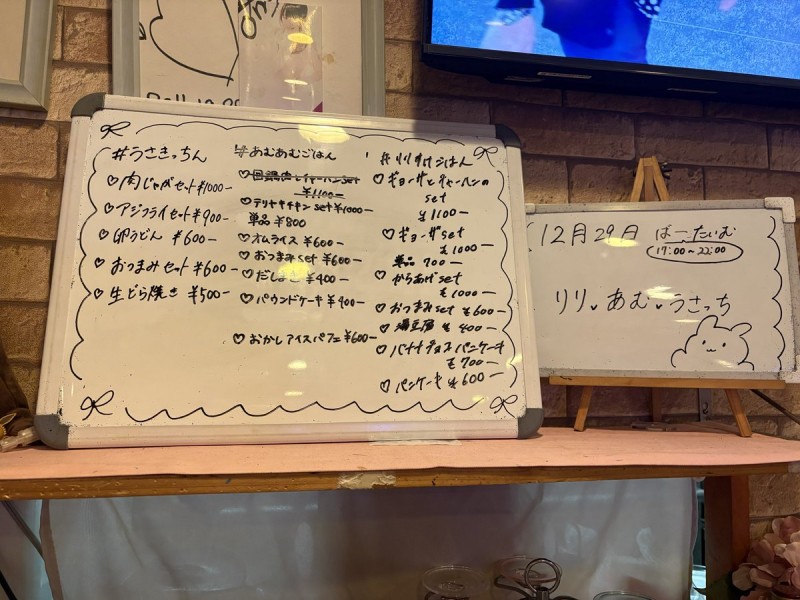 #うさきっちん
♡肉じゃがセット¥1000-
♡アジフライセット¥900-
♡卵うどん ¥600-
♡おつまみセット ¥600-
♡生どら焼き ¥500-
#あむあむごはん
¥1100-
♡テリヤキチキン set ¥1000-
単品 ¥800
♡オムライス ¥600-
♡おつまみset ¥600-
¥400-
♡パウンドケーキ ¥400-
♡おかしアイスパフェ ¥600-
♡ギョーザとチャーハンの
set
¥1100-
♡ギョーザset
¥1000-
単品 700-
♡からあげset
¥1000-
♡おつまみset ¥600-
♡湯豆腐 ¥400-
♡バナナチョコパンケーキ
¥700-
♡パンケーキ ¥600-
12月29日 ばーたいむ
17:00~22:00
リリ♥あむ♥うさっち